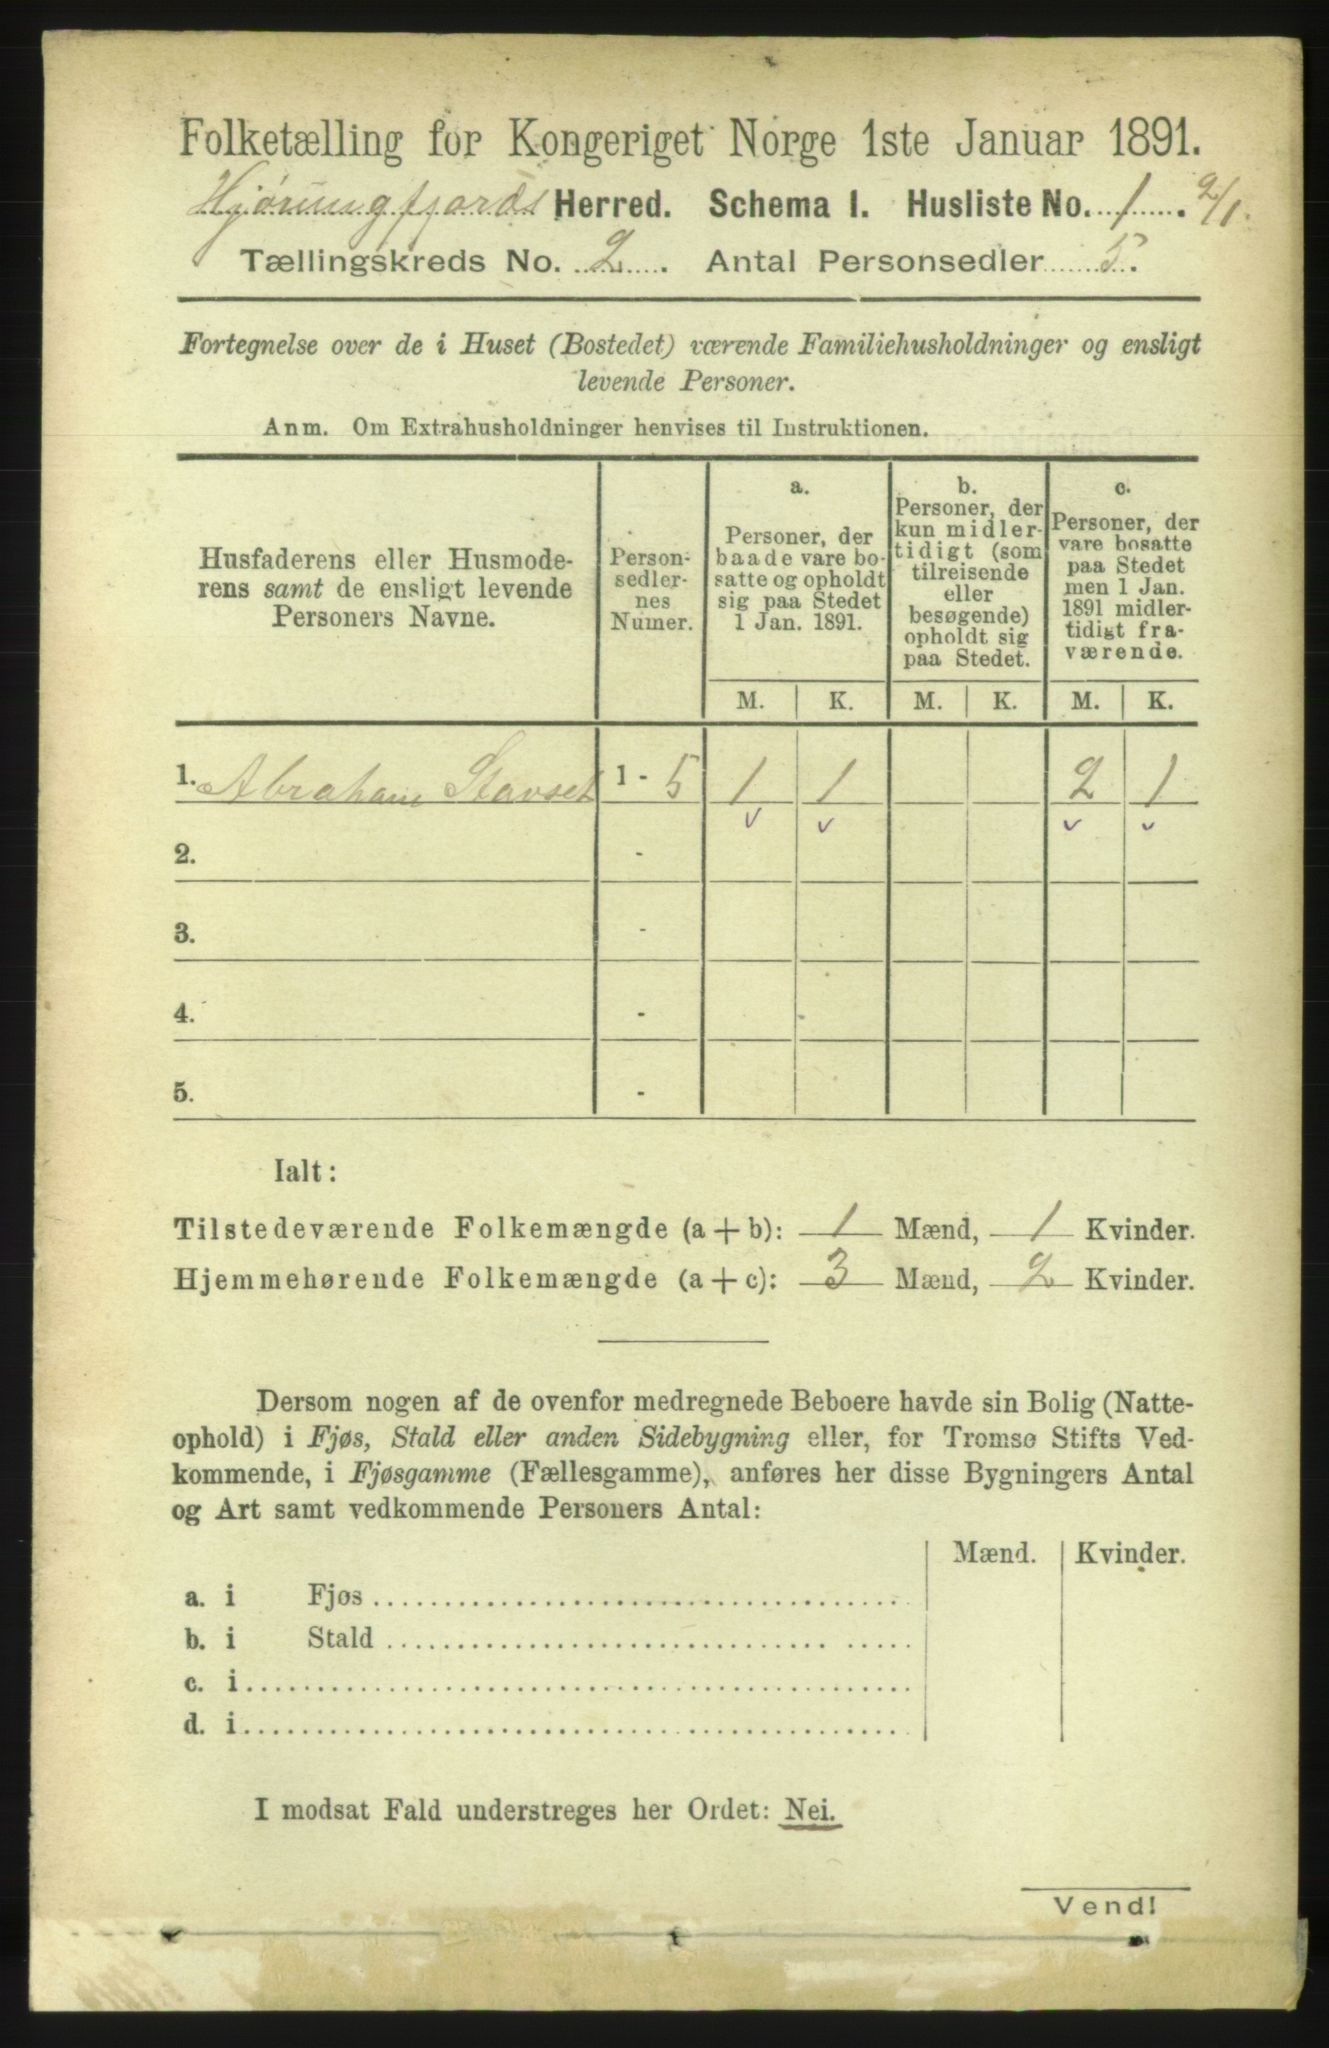 Folketælling for Kongeriget Norge 1ste Januar 1891.
Hjørungfjords Herred. Schema I. Husliste No. 1. 2/1
Tællingskreds No. 2. Antal Personsedler 5.
Fortegnelse over de i Huset (Bostedet) værende Familiehusholdninger og ensligt
levende Personer.
Anm. Om Extrahusholdninger henvises til Instruktionen.
Husfaderens eller Husmode-
rens samt de ensligt levende
Personers Navne.
Person-
sedler-
nes
Numer.
a.
Personer, der
baade vare bo-
satte og opholdt
sig paa Stedet
1 Jan. 1891.
b.
Personer, der
kun midler-
tidigt (som
tilreisende
eller
besøgende)
opholdt sig
paa Stedet.
c.
Personer, der
vare bosatte
paa Stedet
men 1 Jan.
1891 midler-
tidigt fra-
værende.
M. K. M. K. M. K.
1. Abraham Stavset 1 - 5 1 1 2 1
2. -
3. -
4. -
5. -
Ialt:
Tilstedeværende Folkemængde (a + b): 1 Mænd, 1 Kvinder.
Hjemmehørende Folkemængde (a + c): 3 Mænd, 2 Kvinder.
Dersom nogen af de ovenfor medregnede Beboere havde sin Bolig (Natte-
ophold) i Fjøs, Stald eller anden Sidebygning eller, for Tromsø Stifts Ved-
kommende, i Fjøsgamme (Fællesgamme), anføres her disse Bygningers Antal
og Art samt vedkommende Personers Antal:
Mænd. Kvinder.
a. i Fjøs
b. i Stald
c. i
d. i
I modsat Fald understreges her Ordet: Nei.
Vend!